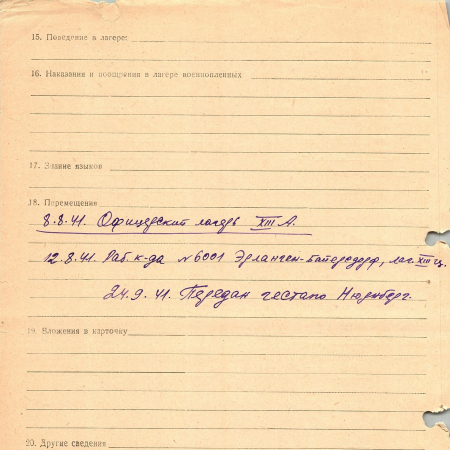 15. Поведение в лагере:
16. Наказания и поощрения в лагере военнопленных
17. Знание языков
18. Перемещения
8.8.41. Офицерский лагерь XIII А.
12.8.41. Раб. к-да №6001 Эрланген-Байерсдорф, лаг. XIII ц.
24.9.41. Передан гестапо Нюрнберг.
19. Вложения в карточку
20. Другие сведения